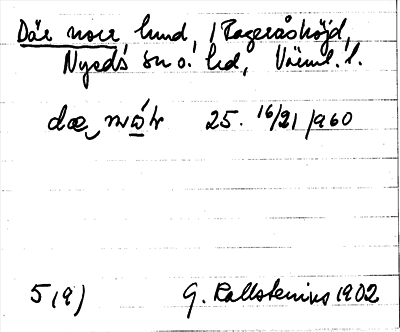 Där norr lund, i Rageråshöjd,
Nyeds sn o. hd, Värml. l.
dæ, nωr 25. 16/21/960
5(9) G. Kallstenius 1902